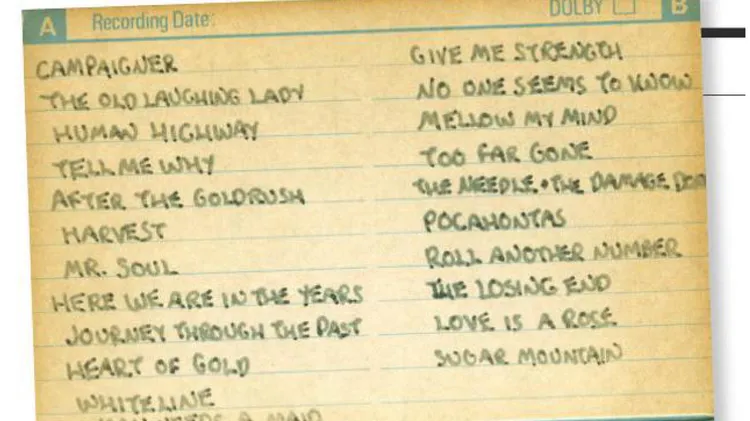 A
Recording Date:
DOLBY
B
CAMPAIGNER
THE OLD LAUGHING LADY
HUMAN HIGHWAY
TELL ME WHY
AFTER THE GOLDRUSH
HARVEST
MR. SOUL
HERE WE ARE IN THE YEARS
JOURNEY THROUGH THE PAST
HEART OF GOLD
WHITELINE
NEEDS A MAID
GIVE ME STRENGTH
NO ONE SEEMS TO KNOW
MELLOW MY MIND
TOO FAR GONE
THE NEEDLE + THE DAMAGE
POCAHONTAS
ROLL ANOTHER NUMBER
THE LOSING END
LOVE IS A ROSE
SUGAR MOUNTAIN